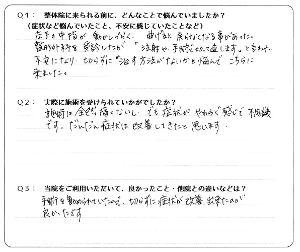 Q1： 整体院に来られる前に、どんなことで悩んでいましたか？
（症状など悩んでいたこと、不安に感じていたことなど）
左手の中指が動かしづらく、曲げると戻りづらくなる事があった。
整形外科を受診したが「注射か、手術で切って直します。」と言われ
不安になり、切らずに治す方法がないかと悩んで こちらに
来ました。
Q2： 実際に施術を受けられていかがでしたか？
施術は全然痛くないし、でも症状がやわらぐ感じで不思議
です。だんだん症状は改善してきたと思います。
Q3： 当院をご利用いただいて、良かったこと・他院との違いなどは？
手術を勧められていたので、切らずに症状が改善出来たのが
良かったです